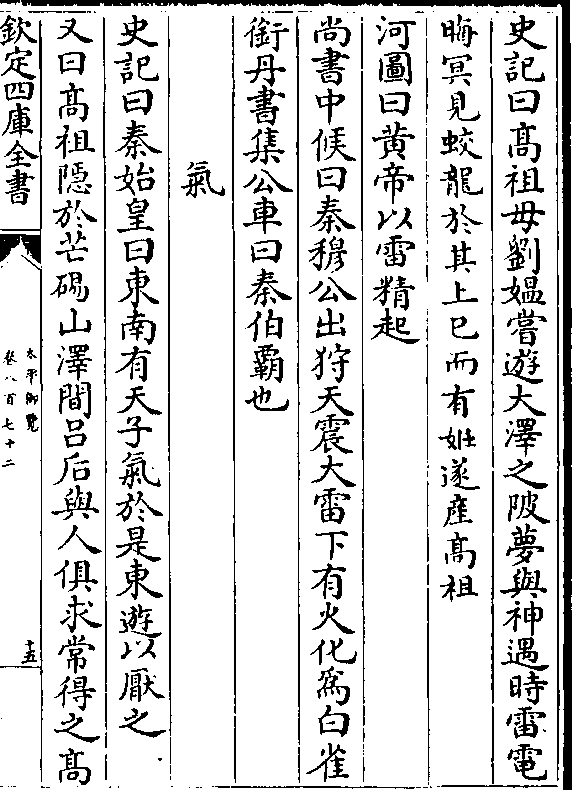 史記曰髙祖母劉媪嘗遊大澤之陂夢與神遇時雷電
晦冥見蛟龍於其上已而有娠遂産髙祖
河圖曰黄帝以雷精起
尚書中候曰秦穆公出狩天震大雷下有火化為白雀
銜丹書集公車曰秦伯覇也
氣
史記曰秦始皇曰東南有天子氣於是東遊以厭之
又曰髙祖隠於芒碭山澤間吕后與人俱求常得之髙
欽定四庫全書
太平御覽
卷八百七十二
十五